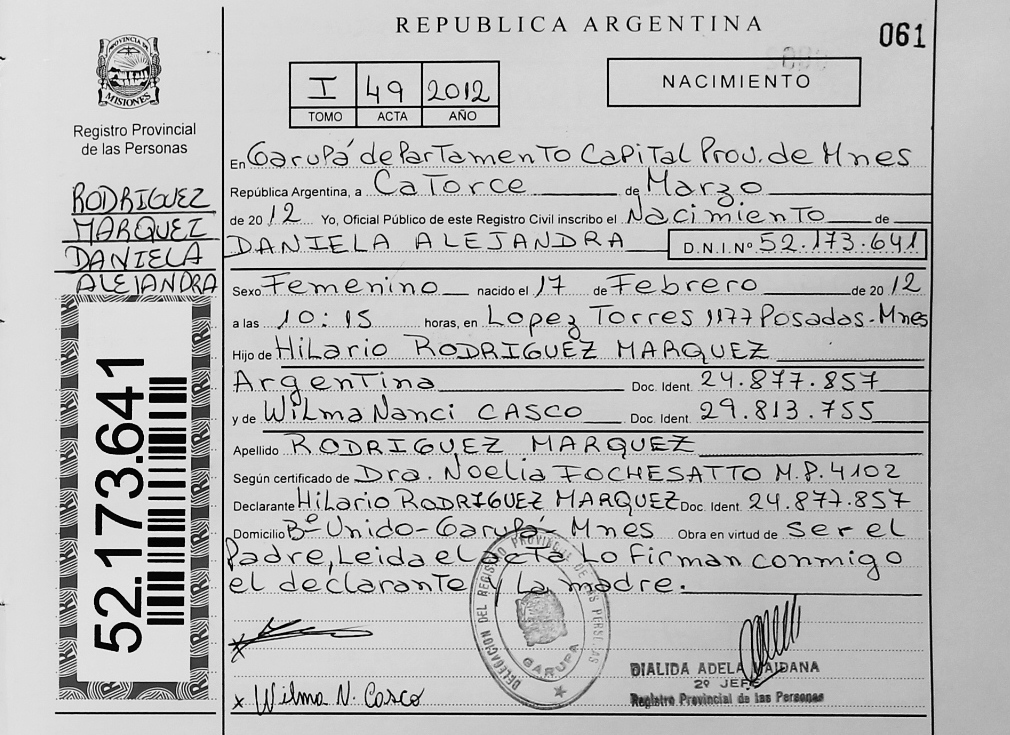 REPUBLICA ARGENTINA
061
PROVINCIA DE
MISIONES
Registro Provincial
de las Personas
RODRIGUEZ
MARQUEZ
DANIELA
ALEJANDRA
52.173.641
I 49 2012
TOMO ACTA AÑO
NACIMIENTO
En Garupá departamento Capital Prov. de Mnes
República Argentina, a Catorce de Marzo
de 2012 Yo, Oficial Público de este Registro Civil inscribo el Nacimiento de
DANIELA ALEJANDRA D.N.I. Nº 52.173.641
Sexo Femenino nacido el 17 de Febrero de 2012
a las 10:15 horas, en Lopez Torres 1177 Posadas-Mnes
Hijo de Hilario RODRIGUEZ MARQUEZ
Argentina Doc. Ident. 24.877.857
y de Wilma Nanci CASCO Doc. Ident. 29.813.755
Apellido RODRIGUEZ MARQUEZ
Según certificado de Dra. Noelia FOCHESATTO M.P. 4102
Declarante Hilario RODRIGUEZ MARQUEZ Doc. Ident. 24.877.857
Domicilio Bº Unido-Garupá-Mnes Obra en virtud de ser el
Padre, Leida el acta Lo firman conmigo
el declarante y La madre.
DELEGACION DEL REGISTRO PROVINCIAL DE LAS PERSONAS
GARUPA
x Wilma N. Casco
DIALIDA ADELA MAIDANA
2º JEFE
Registro Provincial de las Personas